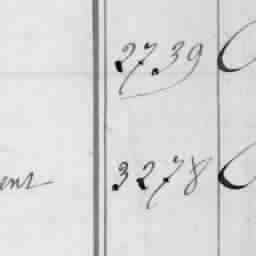 2739
ent 3278